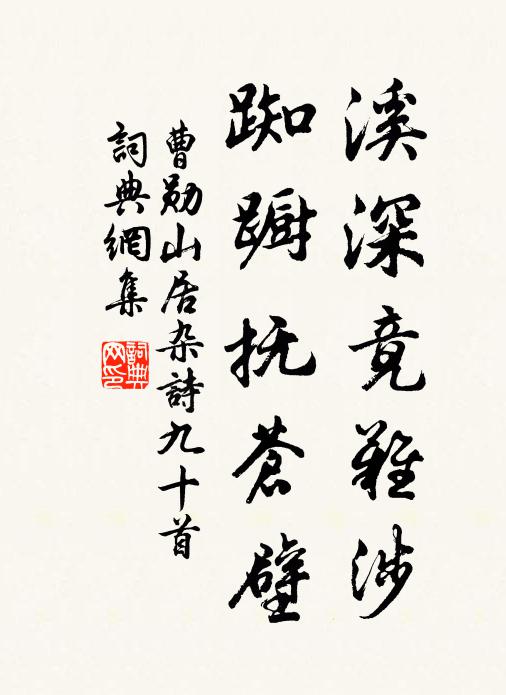 溪深竟難涉
踟蹰抚蒼壁
曹勛山居杂詩九十首
詞典網集
詞典网印